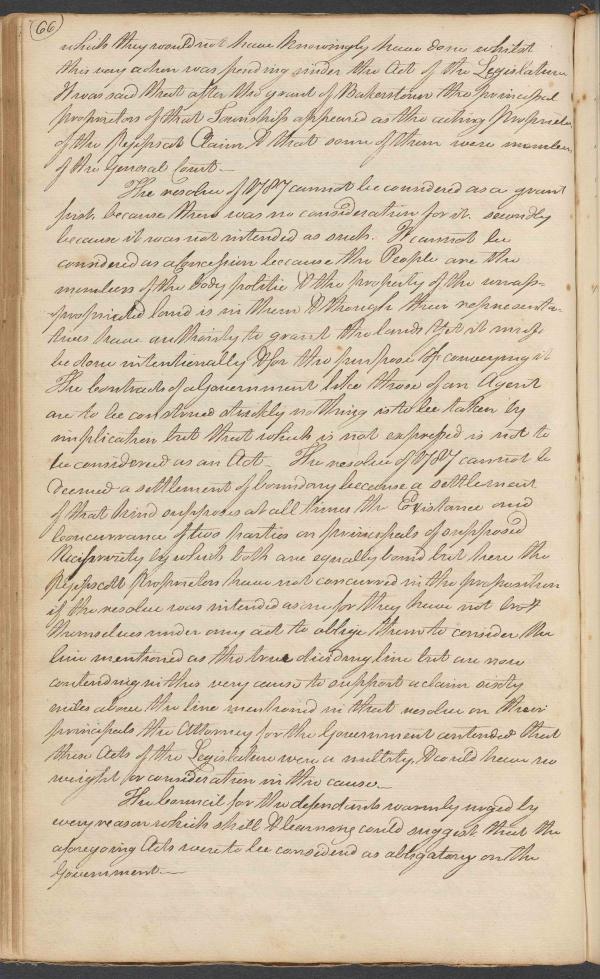 66
which they would not have knowingly have done whilst
this very action was pending under the Act of the Legislature
It was said that after the grant of Bakerstown the principal
proprietors of that Township appeared as the acting Proprietors
of the Pejepscot Claim & that some of them were members
of the General Court—
The resolve of 1787 cannot be considered as a grant
first because there was no consideration for it. secondly
because it was not intended as such. It cannot be
considered as a concession because the People are the
members of the body politic & the property of the unap-
propriated land is in them & though their representa-
tives have authority to grant the lands Yet it must
be done intentionally & for the purpose of conveying it
The Contracts of a Government like those of an Agent
are to be construed strickly nothing is to be taken by
implication but that which is not expressed is not to
be considered as an Act— The resolve of 1787 cannot be
deemed a settlement of boundary because a settlement
of that kind supposes at all times the Existance and
concurrance of two parties on principals of supposed
Reciprocity by which both are equally bound but here the
Pejepscott Proprietors have not concurred in the proposition
if the resolve was intended as one for they have not bro't
themselves under any act to oblige them to consider the
line mentioned as the true dividing line but are now
contending in this very cause to support a claim sixty
miles above the line mentioned in that resolve on their
principals the Attorney for the Government contended that
these Acts of the Legislature were a nullity, & could have no
weight or consideration in the cause—
The Council for the defendants warmly urged by
every reason which skill & learning could suggest that the
aforegoing Acts were to be considered as obligatory on the
Government—